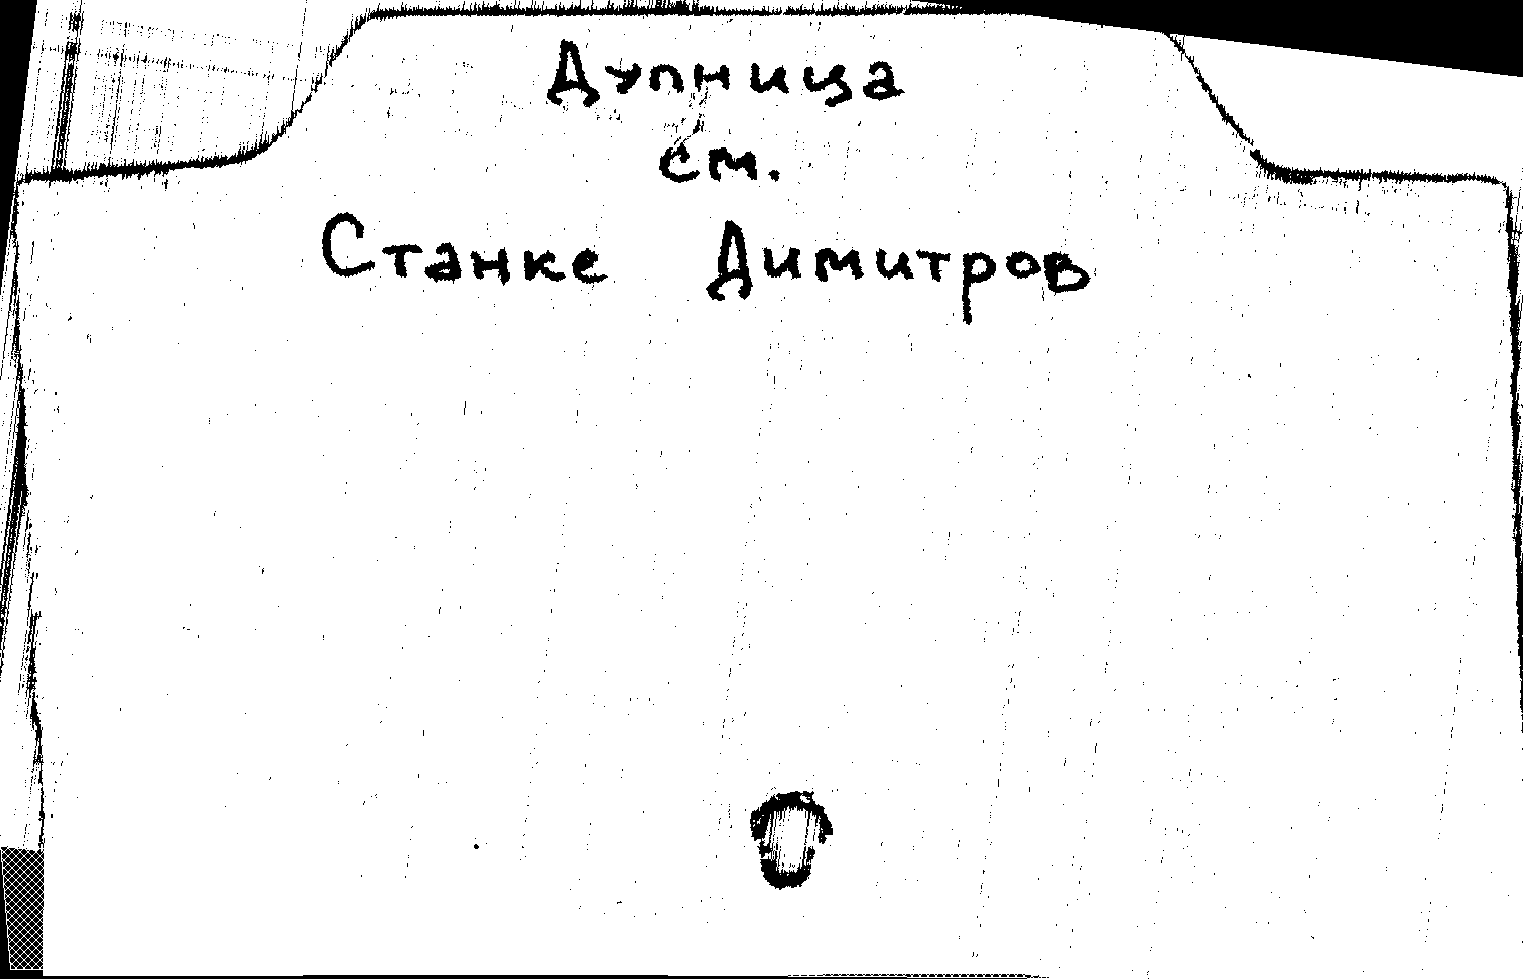 Дупница
см.
Станке Димитров